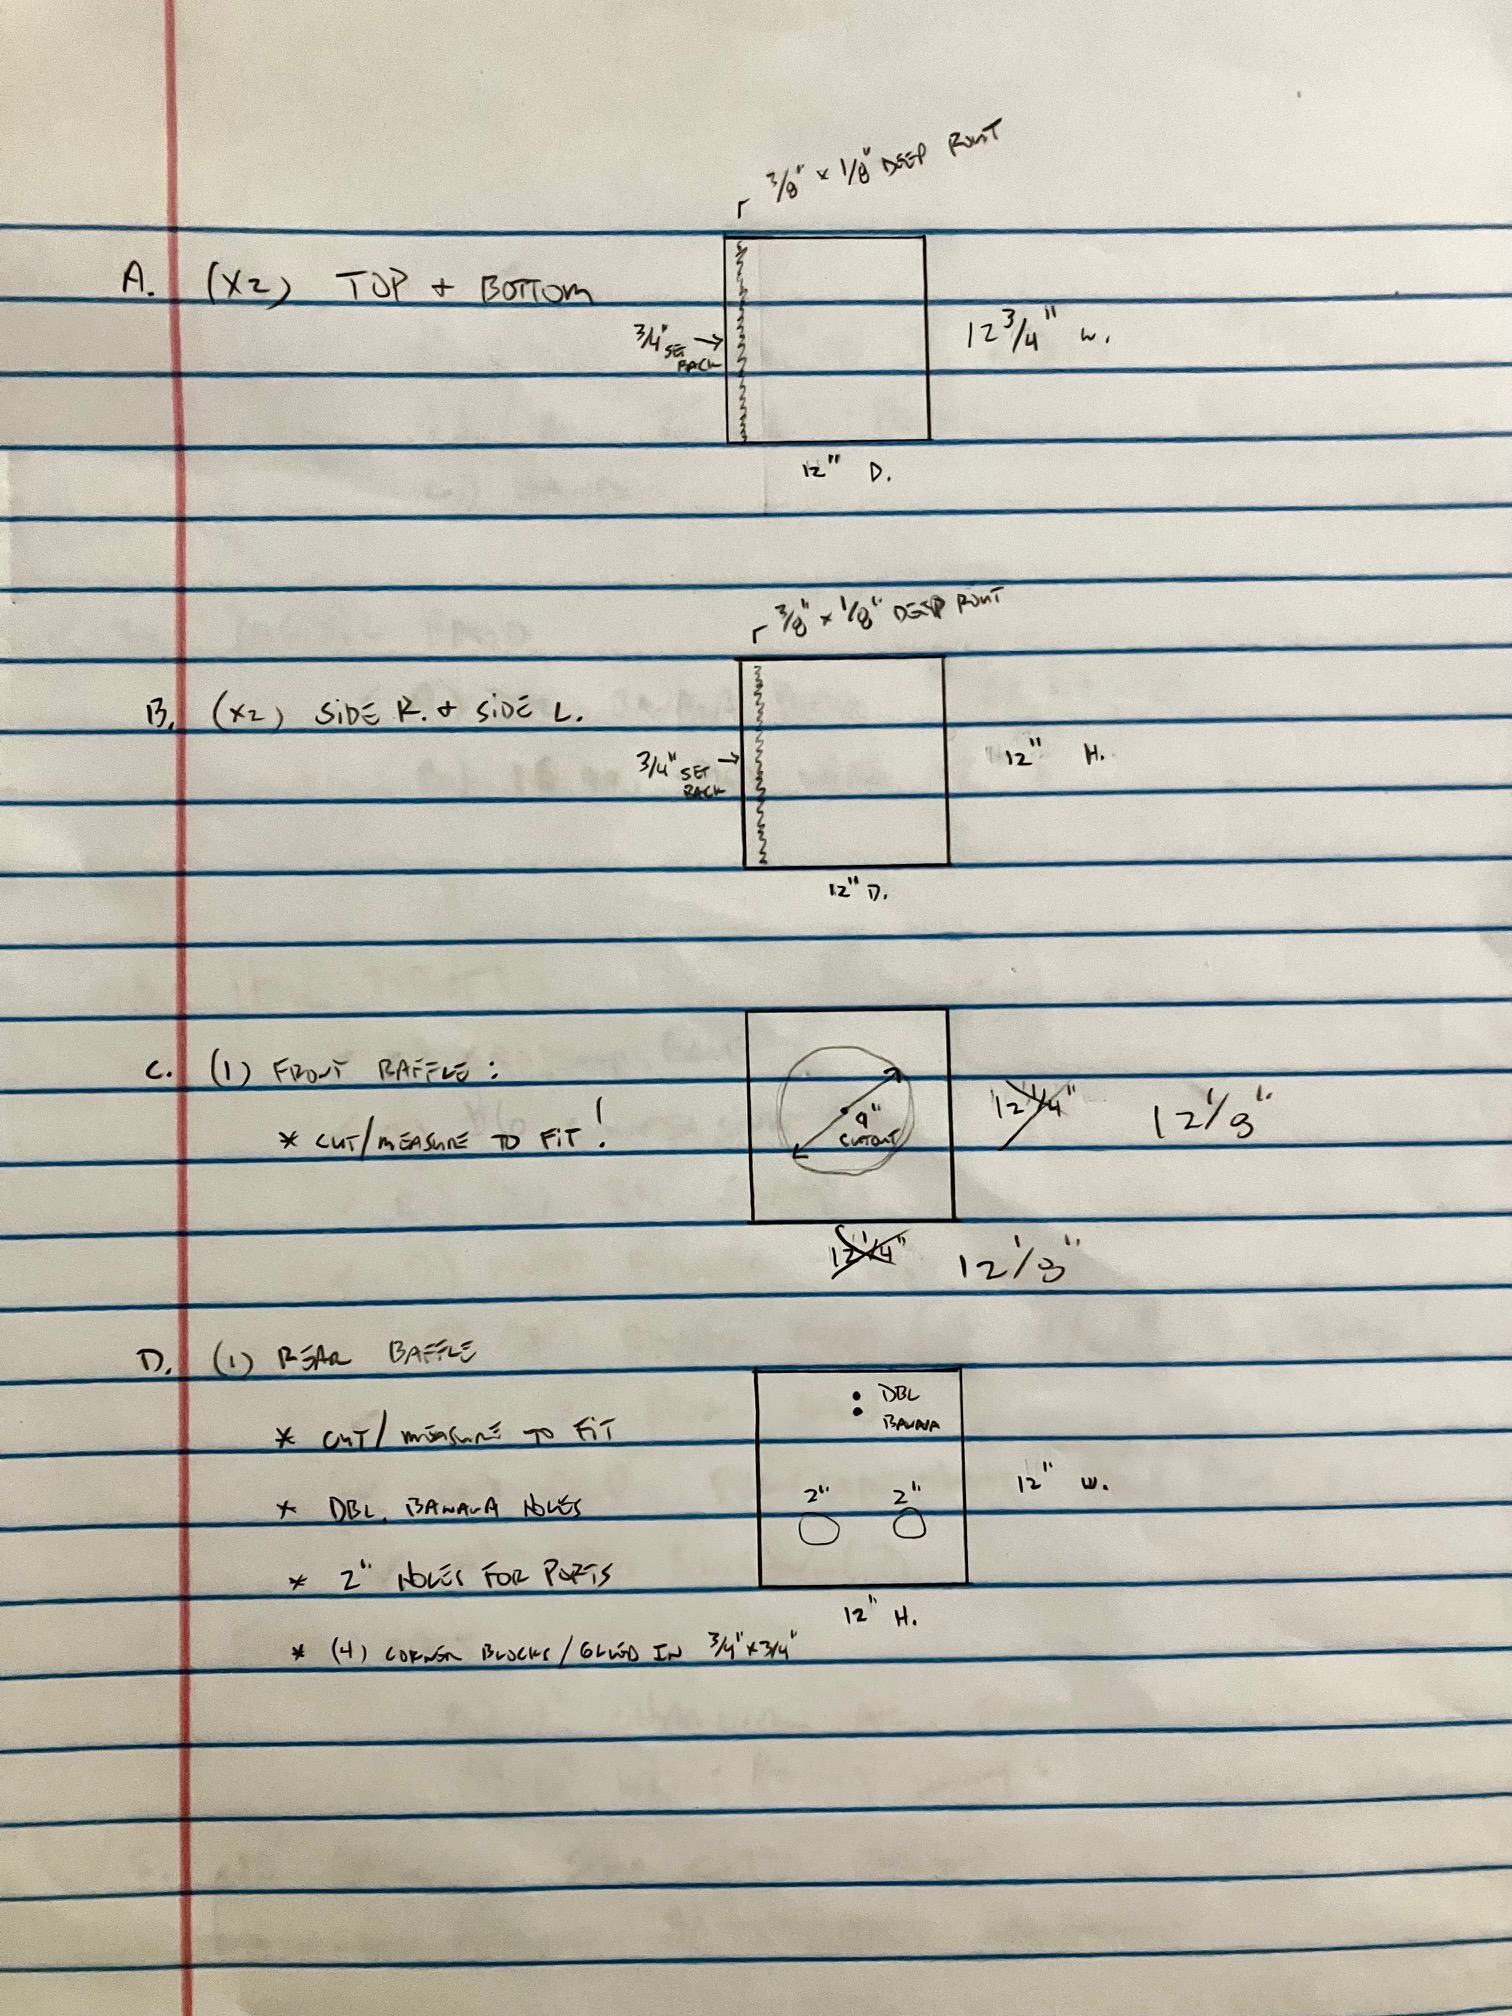 3/8" x 1/8" DEEP ROUT
A. (X2) TOP + BOTTOM
3/4" SET BACK →
12 3/4" W.
12" D.
3/8" x 1/8" DEEP ROUT
B. (X2) SIDE R. + SIDE L.
3/4" SET BACK →
12" H.
12" D.
C. (1) FRONT BAFFLE:
* CUT/MEASURE TO FIT!
9"
CUTOUT
12 1/4" 12 1/8"
12 1/4" 12 1/8"
D. (1) REAR BAFFLE
DBL
BANANA
* CUT/MEASURE TO FIT
2" 2"
12" W.
* DBL. BANANA HOLES
* 2" HOLES FOR PORTS
12" H.
* (4) CORNER BLOCKS/GLUED IN 3/4" x 3/4"